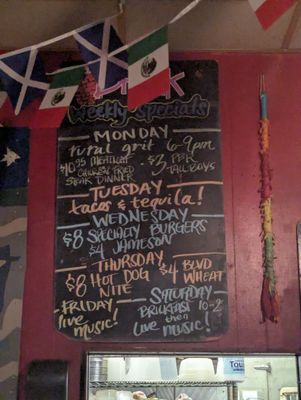 Weekly Specials
MONDAY
rural grit 6-9pm
$10.95 MEATLOAF
CHICKEN FRIED
STEAK DINNER
$3 PBR
TALLBOYS
TUESDAY
tacos & tequila!
WEDNESDAY
$8 SPECIALTY BURGERS
$4 JAMESON
THURSDAY
$8 HOT DOG
NITE
$4 BLVD
WHEAT
FRIDAY
live music!
SATURDAY
BRICKFAST 10-2
then
LIVE MUSIC!